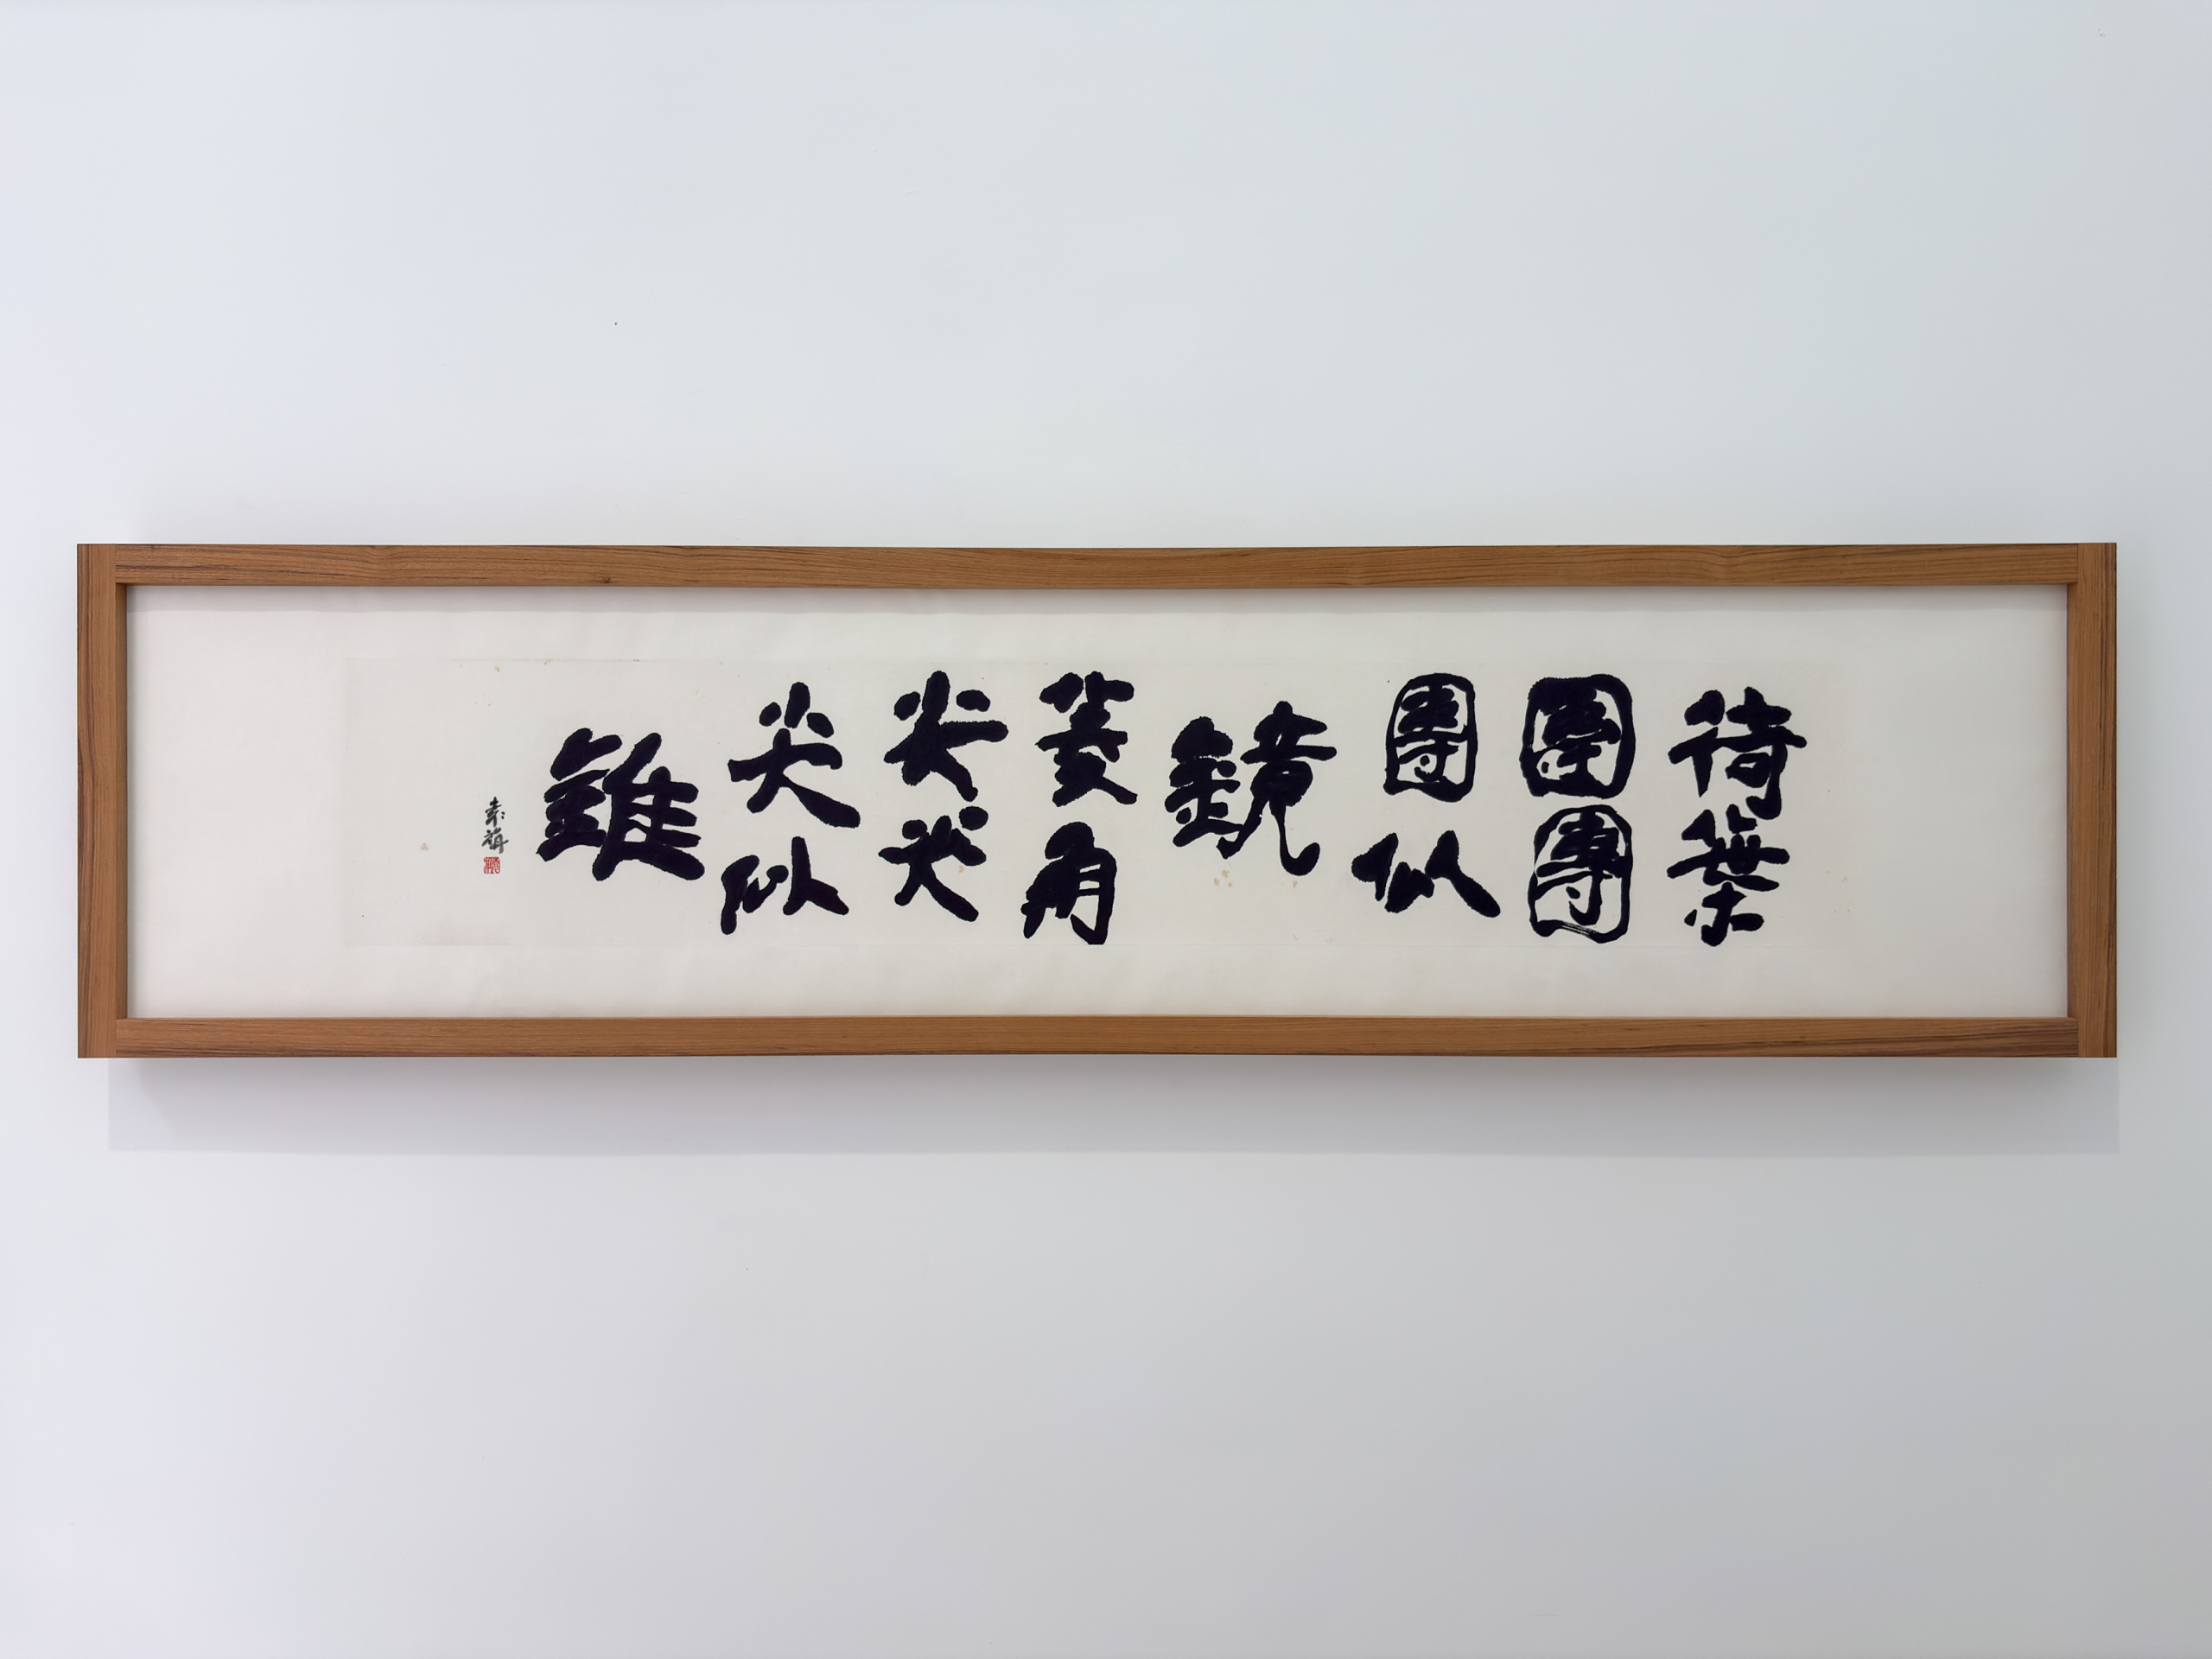 荷葉
團團
團似
鏡
菱角
尖尖
尖似
錐